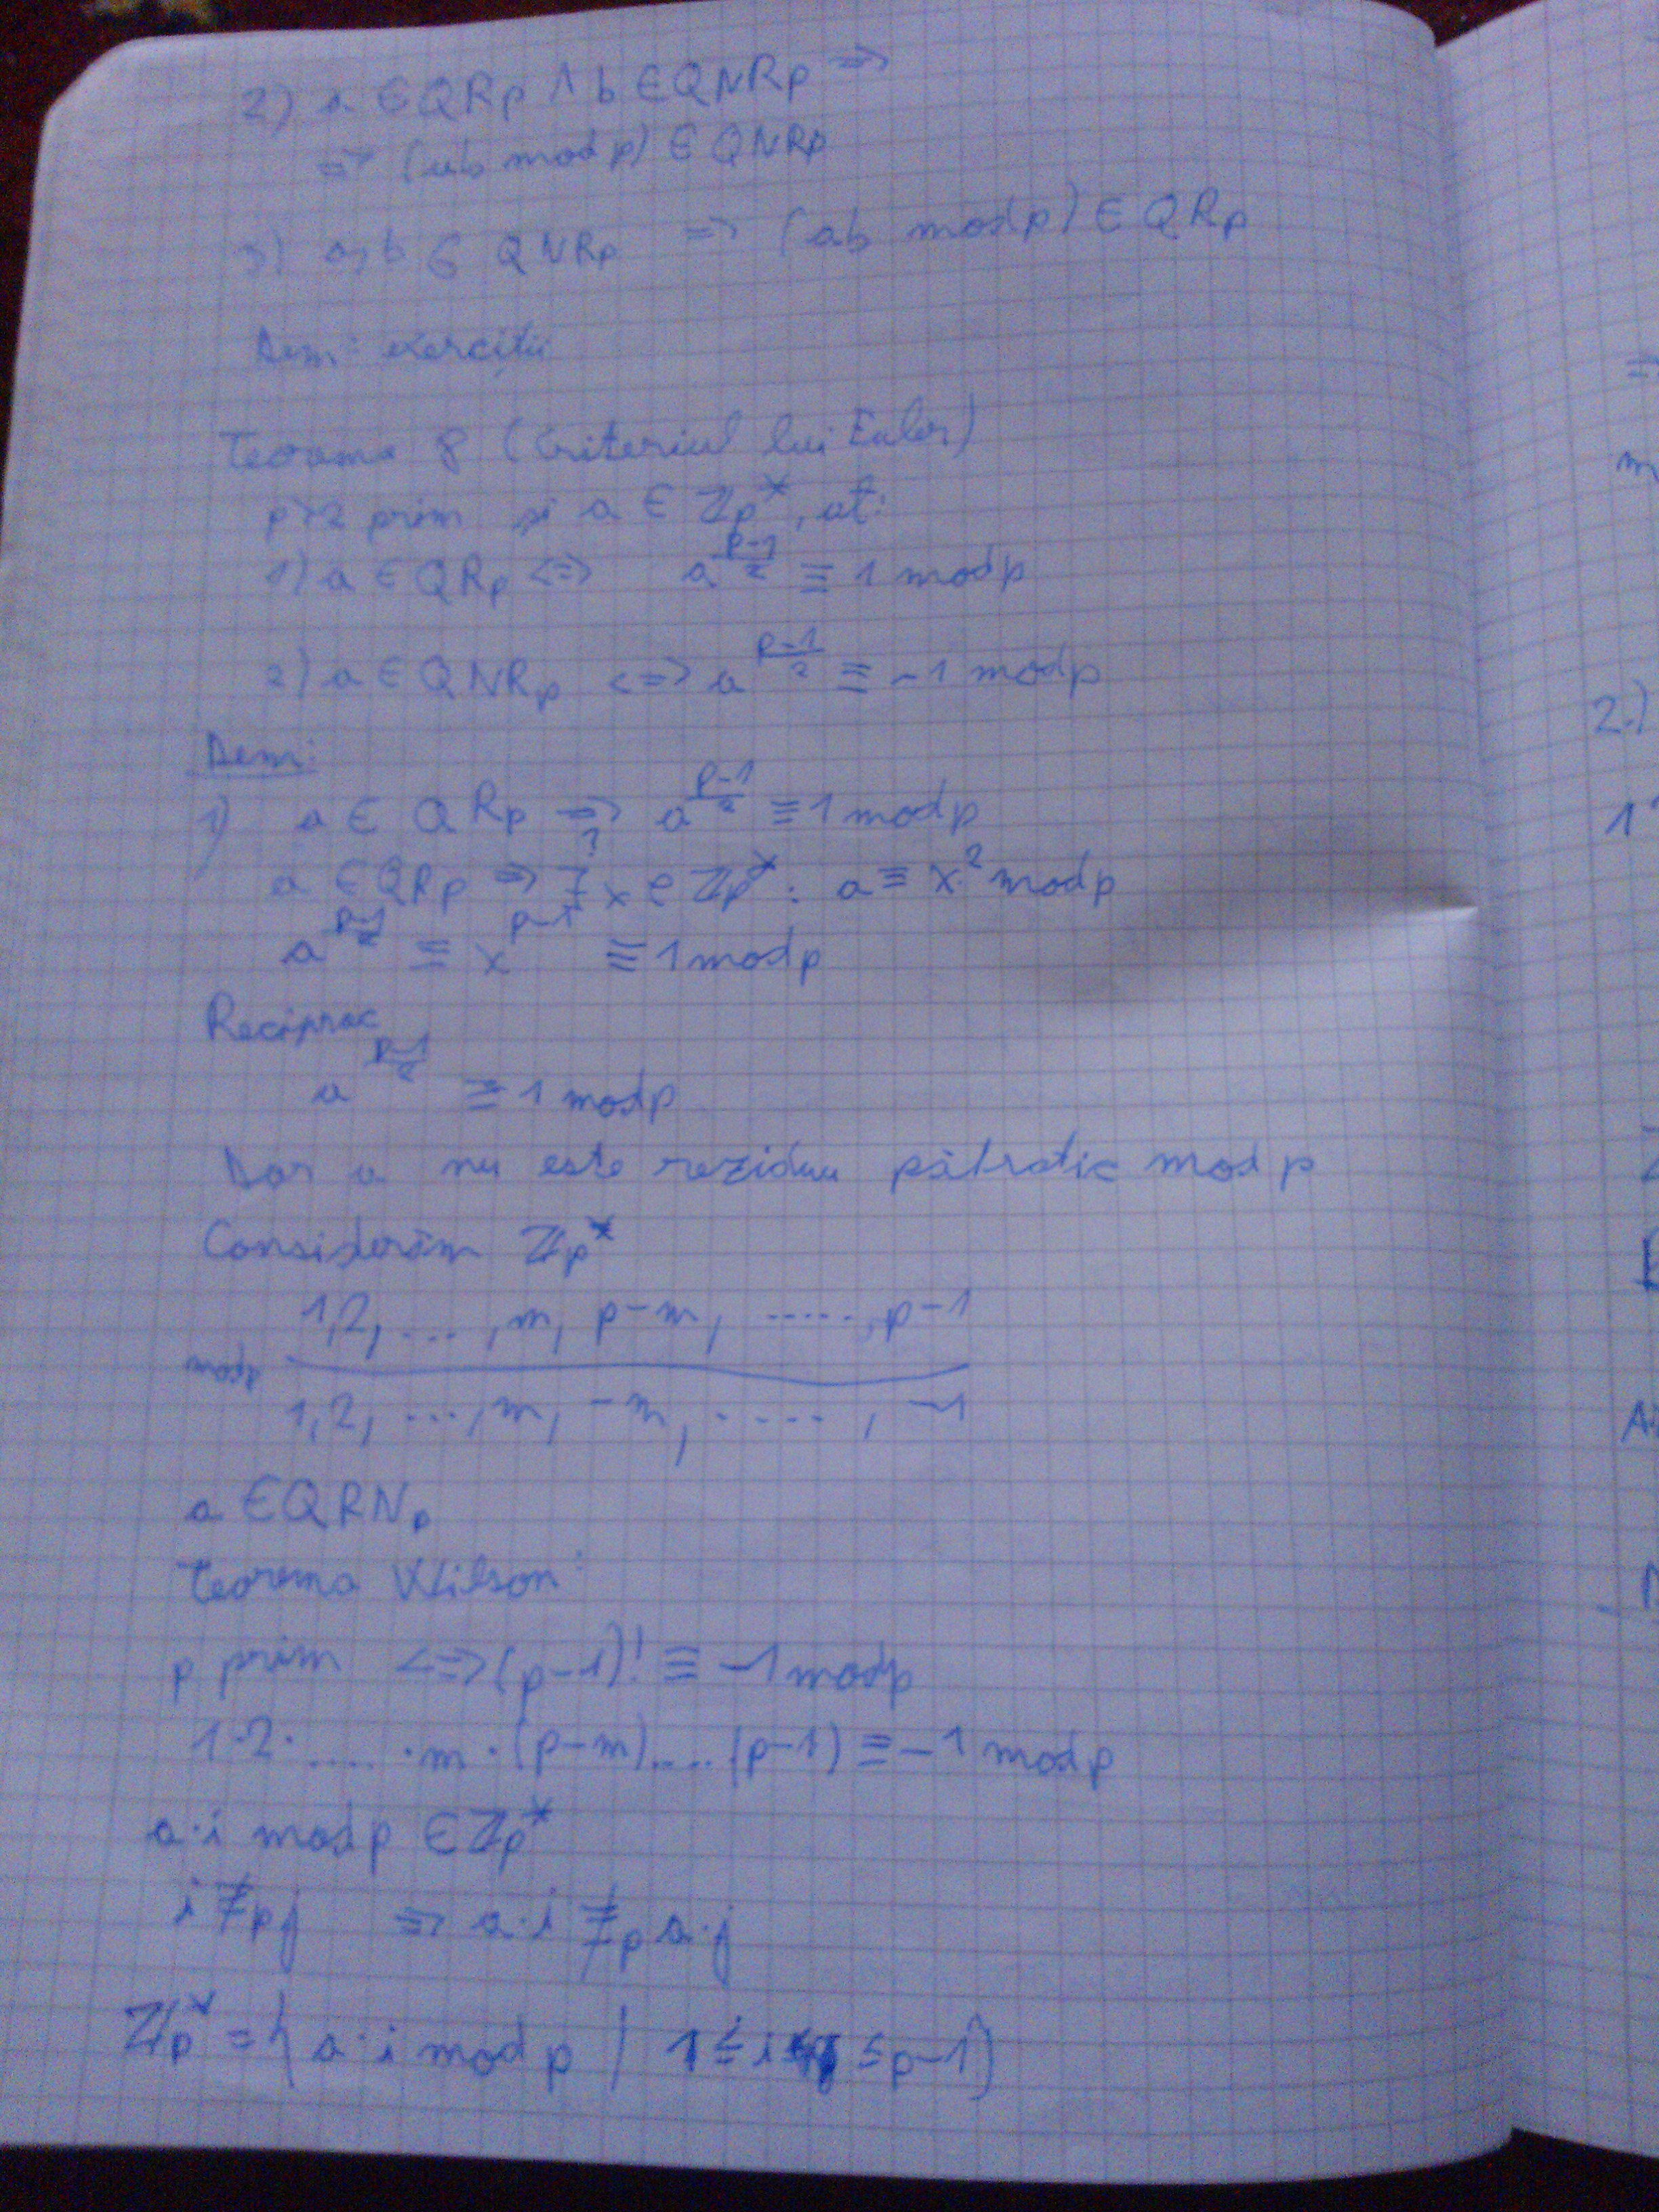 2) a ∈ QRp ∧ b ∈ QNRp =>
=> (ab mod p) ∈ QNRp
3) a, b ∈ QNRp => (ab mod p) ∈ QRp
Dem: exercițiu
Teorema 8 (Criteriul lui Euler)
p>2 prim și a ∈ Zp*, at:
1) a ∈ QRp <=> a^((p-1)/2) ≡ 1 mod p
2) a ∈ QNRp <=> a^((p-1)/2) ≡ -1 mod p
Dem:
1) a ∈ QRp =>? a^((p-1)/2) ≡ 1 mod p
a ∈ QRp => ∃ x ∈ Zp* : a ≡ x² mod p
a^((p-1)/2) ≡ x^(p-1) ≡ 1 mod p
Reciproc
a^((p-1)/2) ≡ 1 mod p
Dar a nu este reziduu pătratic mod p
Considerăm Zp*
1,2, ..., m, p-m, ....., p-1
mod p
1,2, ..., m, -m, ....., -1
a ∈ QRNp
Teorema Wilson:
p prim <=> (p-1)! ≡ -1 mod p
1·2· ..... ·m·(p-m).... (p-1) ≡ -1 mod p
a·i mod p ∈ Zp*
i ≢p j => a·i ≢p a·j
Zp* = { a·i mod p | 1 ≤ i ≤ p-1}
=>
m
2.)
1